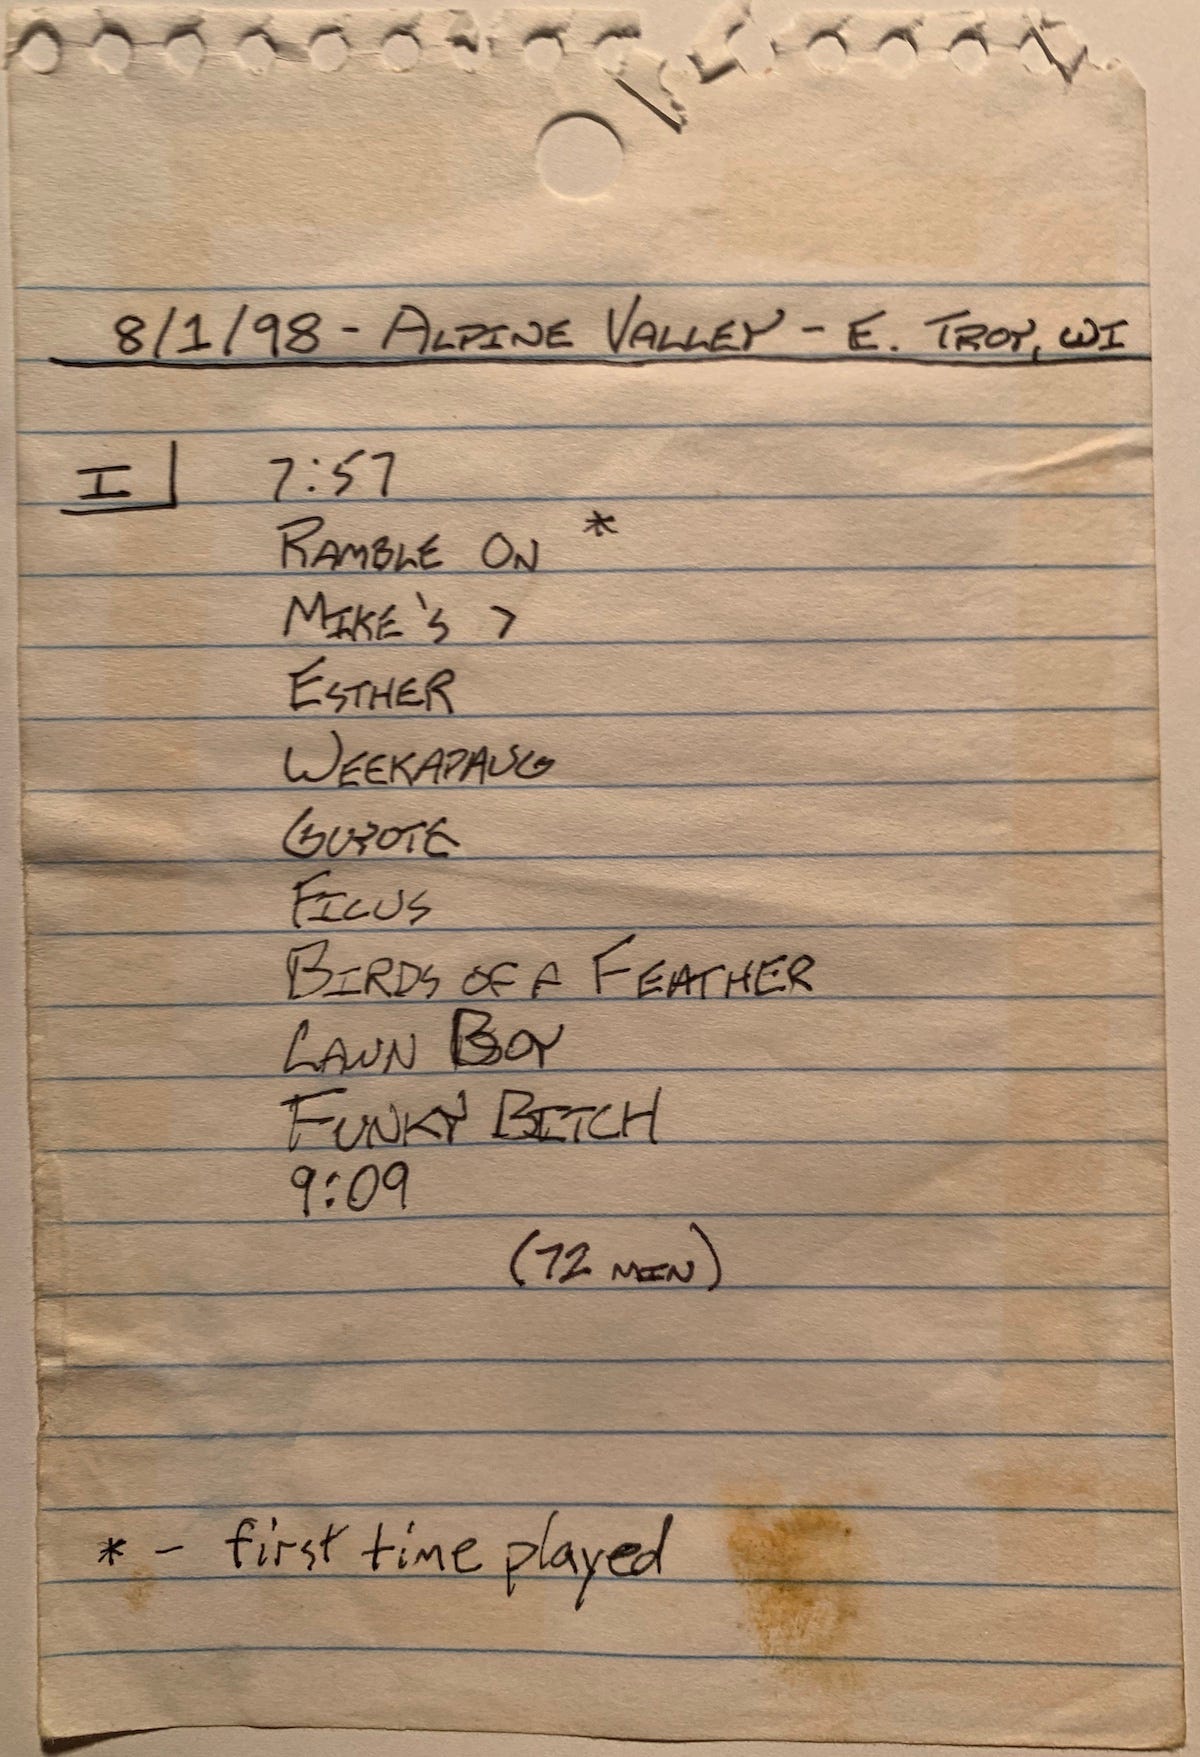 8/1/98 - ALPINE VALLEY - E. TROY, WI
I 7:57
RAMBLE ON *
MIKE'S >
ESTHER
WEEKAPAUG
GUYOTE
FICUS
BIRDS OF A FEATHER
LAWN BOY
FUNKY BITCH
9:09
(72 MIN)
* - first time played